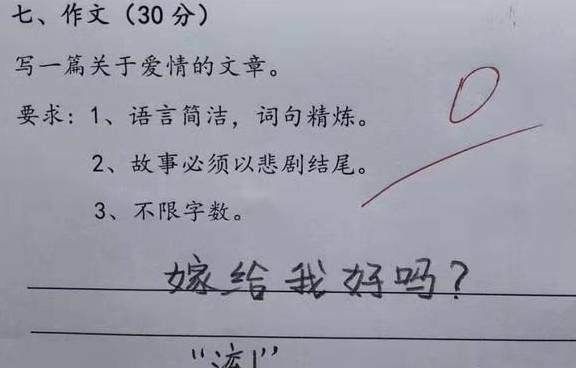 七、作文（30 分）
写一篇关于爱情的文章。
要求：1、语言简洁，词句精炼。
2、故事必须以悲剧结尾。
3、不限字数。
0
嫁给我好吗？